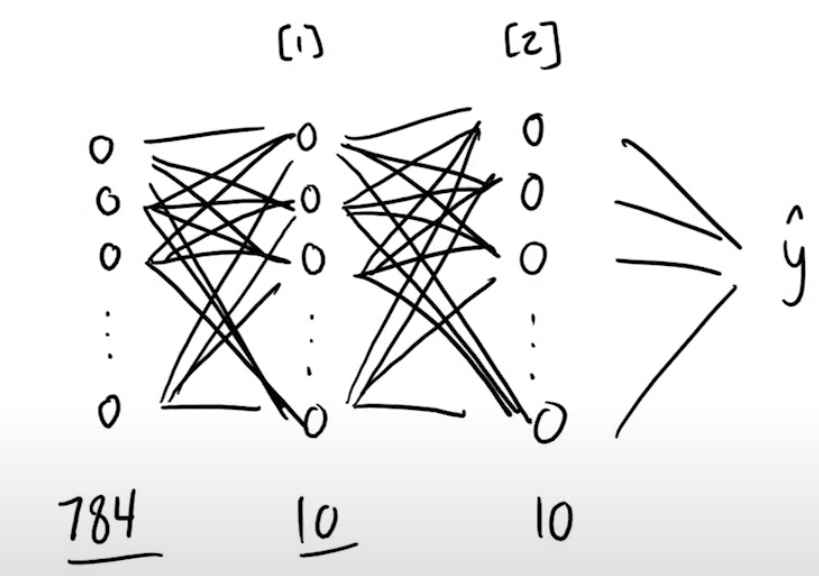 [1] [2]
ŷ
784 10 10